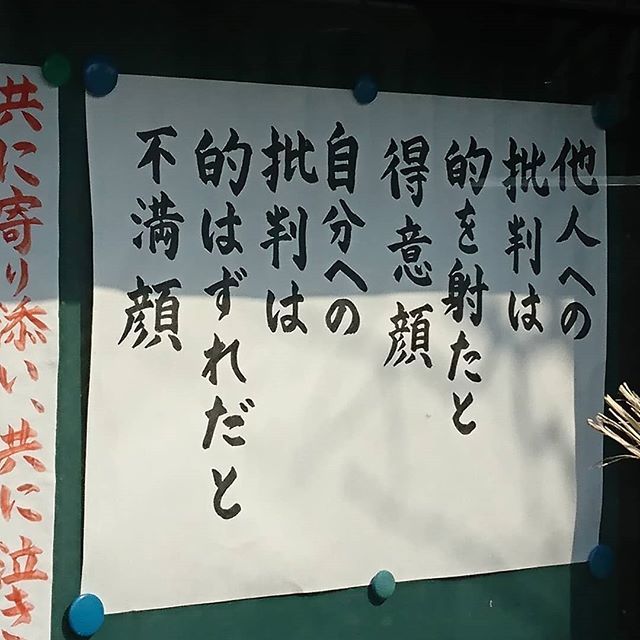 他人への
批判は
的を射たと
得意顔
自分への
批判は
的はずれだと
不満顔
共に寄り添い、共に泣き